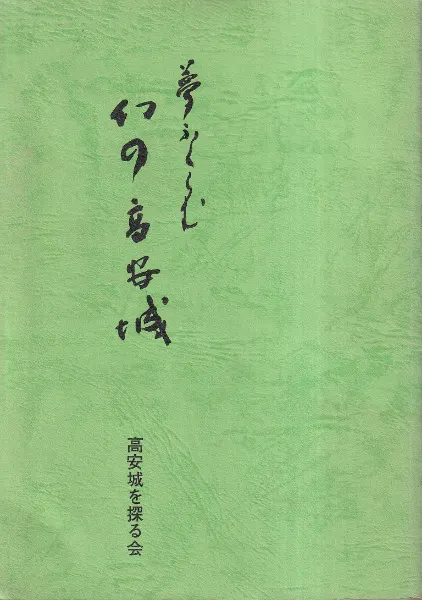 夢ふくらむ
幻の高安城
高安城を探る会